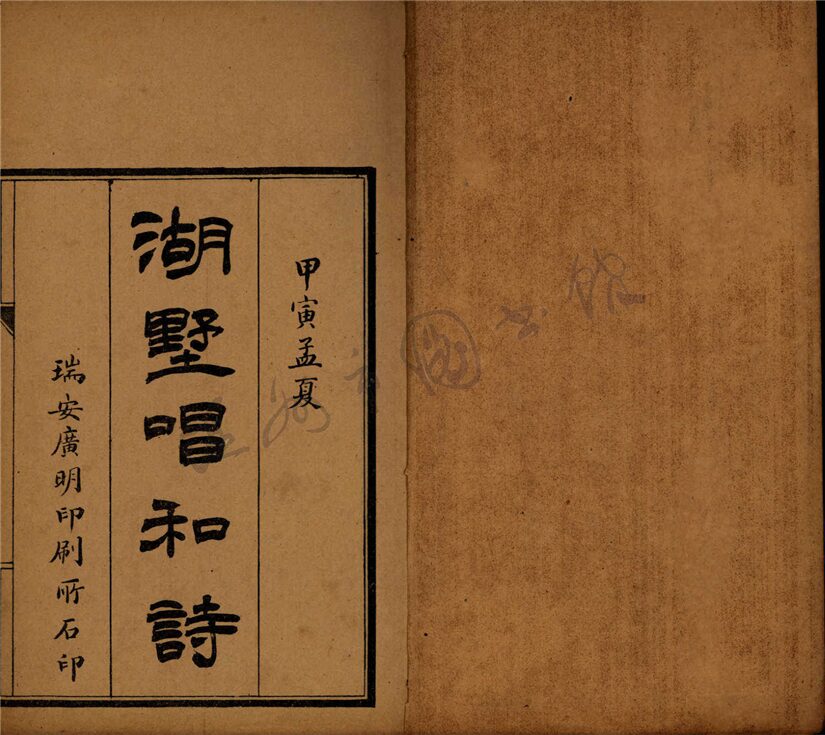 甲寅孟夏
湖墅唱和詩
瑞安廣明印刷所石印